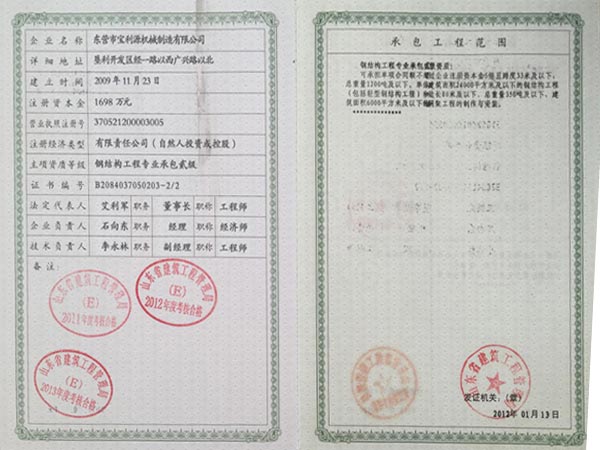 企业名称 东营市宝利源机械制造有限公司
详细地址 垦利开发区经一路以西广兴路以北
建立时间 2009年11月23日
注册资本金 1698万元
营业执照注册号 370521200003005
注册经济类型 有限责任公司(自然人投资或控股)
主项资质等级 钢结构工程专业承包贰级
证书编号 B2084037050203-2/2
法定代表人 艾利军 职务 董事长 职称 工程师
企业负责人 石向东 职务 经理 职称 经济师
技术负责人 李永林 职务 副经理 职称 工程师
备注:
山东省建筑工程管理局
(E)
2011年度考核合格
山东省建筑工程管理局
(E)
2012年度考核合格
山东省建筑工程管理局
(E)
2013年度考核合格
承包工程范围
钢结构工程专业承包贰级资质:
可承担单项合同额不超过企业注册资本金5倍且跨度33米及以下、
总重量1200吨及以下、单体建筑面积24000平方米及以下的钢结构工程
(包括轻型钢结构工程)和边长80米及以下、总重量350吨及以下、建
筑面积6000平方米及以下的网架工程的制作与安装。
山东省建筑工程管理局
发证机关:(章)
2012年01月13日